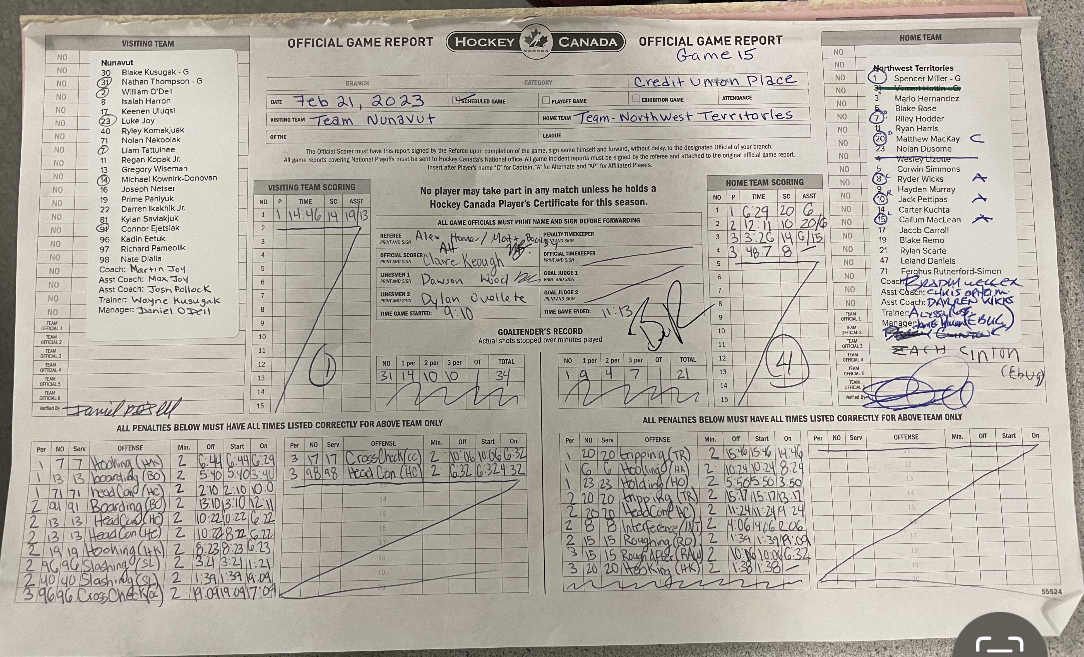 VISITING TEAM
OFFICIAL GAME REPORT
HOCKEY CANADA
OFFICIAL GAME REPORT
Game 15
HOME TEAM
Nunavut
30 Blake Kusugak - G
31 Nathan Thompson - G
2 William O'Dell
8 Isaiah Harron
17 Keenen Uluqsi
23 Luke Joy
40 Ryley Komakjuak
71 Nolan Nakoolak
7 Liam Tattuinee
11 Regan Kopak Jr.
13 Gregory Wiseman
14 Michael Kownirk-Donovan
16 Joseph Netser
19 Prime Paniyuk
22 Darren Ikakhik Jr.
81 Kylan Saviakjuk
91 Connor Ejetsiak
96 Kadin Eetuk
97 Richard Pameolik
98 Nate Dialla
Coach: Martin Joy
Asst Coach: Max Joy
Asst Coach: Josh Pollock
Trainer: Wayne Kusugak
Manager: Daniel O'Dell
TEAM OFFICIAL 1
TEAM OFFICIAL 2
TEAM OFFICIAL 3
TEAM OFFICIAL 4
TEAM OFFICIAL 5
TEAM OFFICIAL 6
Verified By
BRANCH
CATEGORY
Credit Union Place
DATE Feb 21, 2023
SCHEDULED GAME
PLAYOFF GAME
EXHIBITION GAME
ATTENDANCE
VISITING TEAM Team Nunavut
HOME TEAM Team-Northwest Territories
OF THE
LEAGUE
The Official Scorer must have this report signed by the Referee upon completion of the game, sign same himself and forward, without delay, to the designated Official of your branch.
All game reports covering National Playoffs must be sent to Hockey Canada's National office. All game incident reports must be signed by the referee and attached to the original official game report.
Insert after Player's name "C" for Captain, "A" for Alternate and "AP" for Affiliated Players.
VISITING TEAM SCORING
NO P TIME SC ASST
1 1 14:46 14 19/13
2
3
4
5
6
7
8
9
10
11
12
13
14
15
1
No player may take part in any match unless he holds a
Hockey Canada Player's Certificate for this season.
ALL GAME OFFICIALS MUST PRINT NAME AND SIGN BEFORE FORWARDING
REFEREE PRINT AND SIGN
PENALTY TIMEKEEPER
OFFICIAL SCORER Claire Keough
OFFICIAL TIMEKEEPER
LINESMEN 1 Dawson Wood
GOAL JUDGE 1
LINESMEN 2 Dylan Ouellete
GOAL JUDGE 2
TIME GAME STARTED: 9:10
TIME GAME ENDED: 11:13
GOALTENDER'S RECORD
Actual shots stopped over minutes played
NO 1 per 2 per 3 per OT TOTAL
31 14 10 10 / 34
NO 1 per 2 per 3 per OT TOTAL
1 9 4 7 21
HOME TEAM SCORING
NO P TIME SC ASST
1 1 6:29 20 6
2 2 12:11 10 20/6
3 3 3:26 14 6/15
4 3 48.7 8 -
5
6
7
8
9
10
11
12
13
14
15
4
Northwest Territories
1 Spencer Miller - G
3 Mario Hernandez
Blake Rose
7 Riley Hodder
Ryan Harris
20 Matthew MacKay C
23 Nolan Dusome
4 Wesley Lizotte
Corwin Simmons
8 Ryder Wicks A
9 Hayden Murray
10 Jack Pettipas A
14 Carter Kuchta
15 Callum MacLean A
17 Jacob Carroll
19 Blake Remo
21 Rylan Scarfe
47 Leland Daniels
71 Ferghus Rutherford-Simon
Coach:
Asst Coach:
Asst Coach: DARREN WICKS
Trainer:
Manager:
ZACH SINTON
(Ebug)
Verified By
ALL PENALTIES BELOW MUST HAVE ALL TIMES LISTED CORRECTLY FOR ABOVE TEAM ONLY
Per NO Serv OFFENSE Min. Off Start On
1 7 7 Hooking (HK) 2 6:44 6:44 6:29
1 13 13 boarding (BO) 2 5:40 5:40 3:40
1 71 71 head Con (HC) 2 2:10 2:10 10.0
2 91 91 Boarding (BO) 2 13:10 13:10 12:11
2 13 13 Head Con (HC) 2 10:22 10:22 6:22
2 13 13 Head Con (HC) 2 10:22 8:22 6:22
2 19 19 Hooking (HK) 2 8:23 8:23 6:23
2 96 96 Slashing (SL) 2 3:21 3:21 1:21
2 40 40 Slashing (SL) 2 1:39 1:39 19:09
3 96 96 Cross Check (CC) 2 19:09 19:09 17:09
Per NO Serv OFFENSE Min. Off Start On
3 17 17 Cross Check (CC) 2 10:06 10:06 6:32
3 98 98 Head Con (HC) 2 6:32 6:32 4:32
ALL PENALTIES BELOW MUST HAVE ALL TIMES LISTED CORRECTLY FOR ABOVE TEAM ONLY
Per NO Serv OFFENSE Min. Off Start On
1 20 20 tripping (TR) 2 15:46 15:46 14:46
1 6 6 Hooking (HK) 2 10:24 10:24 8:24
1 23 23 Holding (HO) 2 5:50 5:50 3:50
2 20 20 tripping (TR) 2 15:17 15:17 13:17
2 20 20 Head Con (HC) 2 11:24 11:24 9:24
2 8 8 Interference (INT) 2 4:06 4:06 2:06
2 15 15 Roughing (RO) 2 1:39 1:39 19:09
3 15 15 Rough After (RAW) 2 10:06 10:06 6:32
3 20 20 Hooking (HK) 2 1:38 1:38 -
Per NO Serv OFFENSE Min. Off Start On
55524